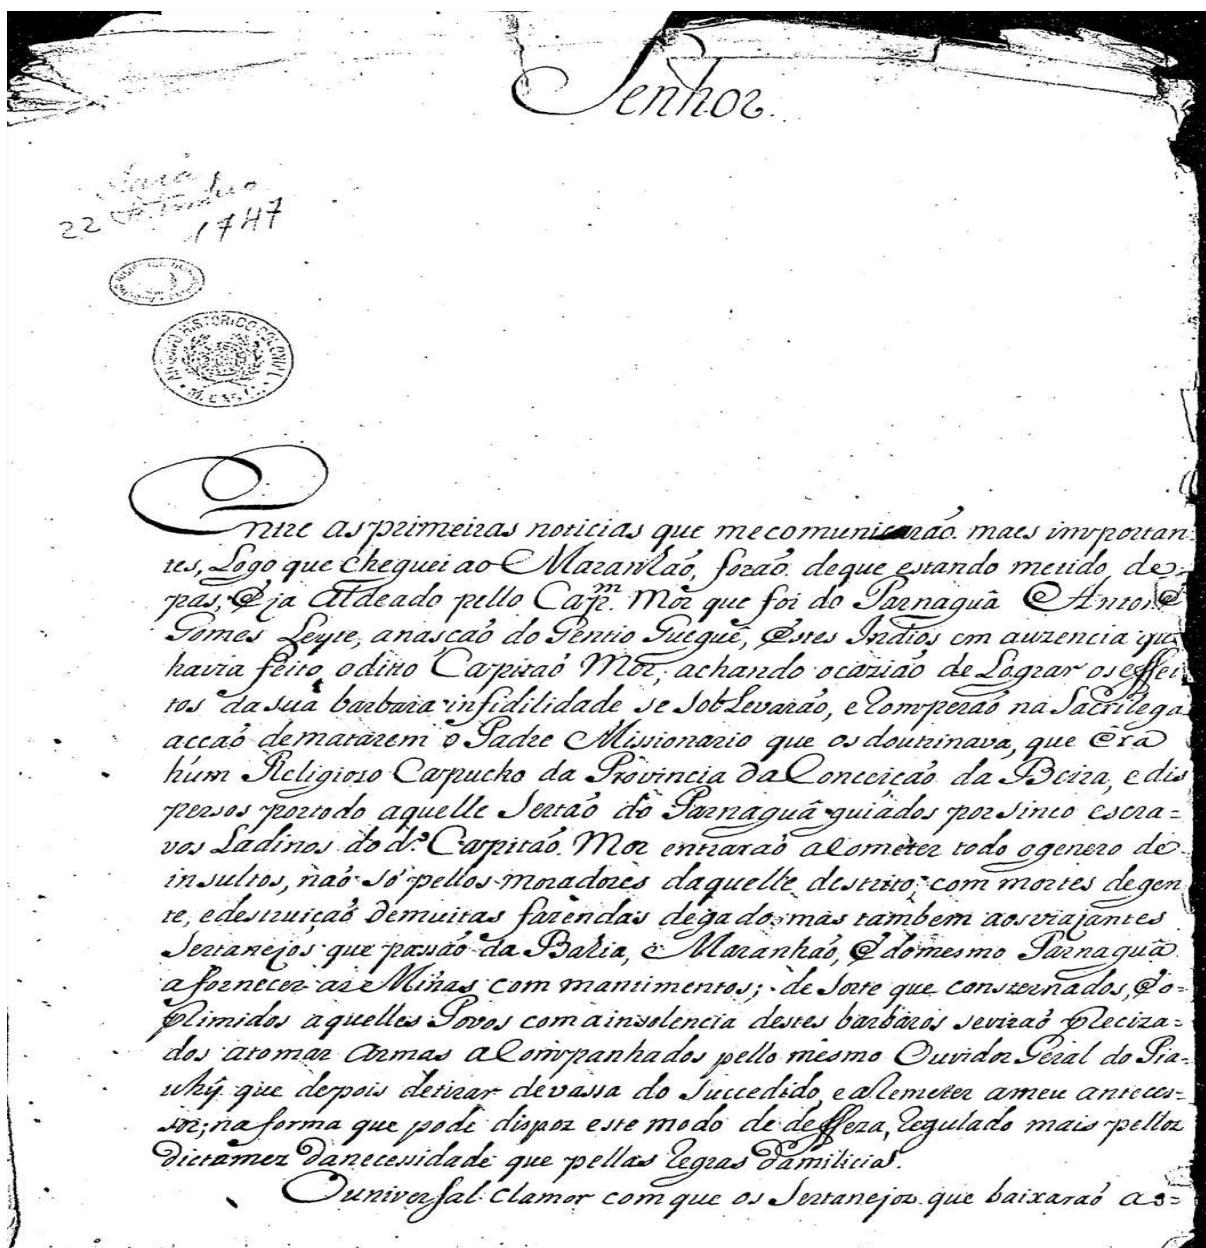 Senhor.
22
1747
HISTORICO COLONIAL
Entre as primeiras noticias que mecomunicarão. maes importan=
tes, Logo que cheguei ao Maranhaõ, foraõ deque estando metido de
pas, E ja Aldeado pello Cap.^m Mór que foi do Parnaguâ Anton
Gomes Leyte, anasçaõ do Gentio Guegue, Estes Indios em auzencia que
havia feito, odito Capitaõ Mór, achando ocazião de Lograr os effei
tos da sua barbara infidilidade se sobLevaraõ, e Romperaõ na Sacrilega
acçaõ dematarem o Padre Missionario que os doutrinava, que Era
hum Religioso Capucho da Provincia da Conceiçaõ da Beira, e dis
persos portodo aquelle Sertaõ do Parnaguâ guiados por sinco escra=
vos Ladinos do d.^o Capitaõ Mor entraraõ aCometer todo ogenero de
insultos, naõ só pellos moradores daquelle destrito; com mortes degen
te, edestruiçaõ demuitas fazendas degado, mas tambem aosviajantes
Sertanejos que passaõ da Bahia, e Maranhaõ, E domesmo Parnaguâ
afornecer as Minas com mantimentos; de sorte que consternados, E o=
primidos aquelles Povos comainsolencia destes barbaros seviraõ Preciza=
dos atomar Armas aCompanhados pello mesmo Ouvidor Geral do Pia=
uhŷ que depois detirar devassa do succedido, eaRemeter ameu anteces=
sor; naforma que pode dispoz este modo de deffeza, Regulado mais pellos
dictamez danecessidade que pellas Regras damilicia.
O universal clamor comque os Sertanejos que baixaraõ as=